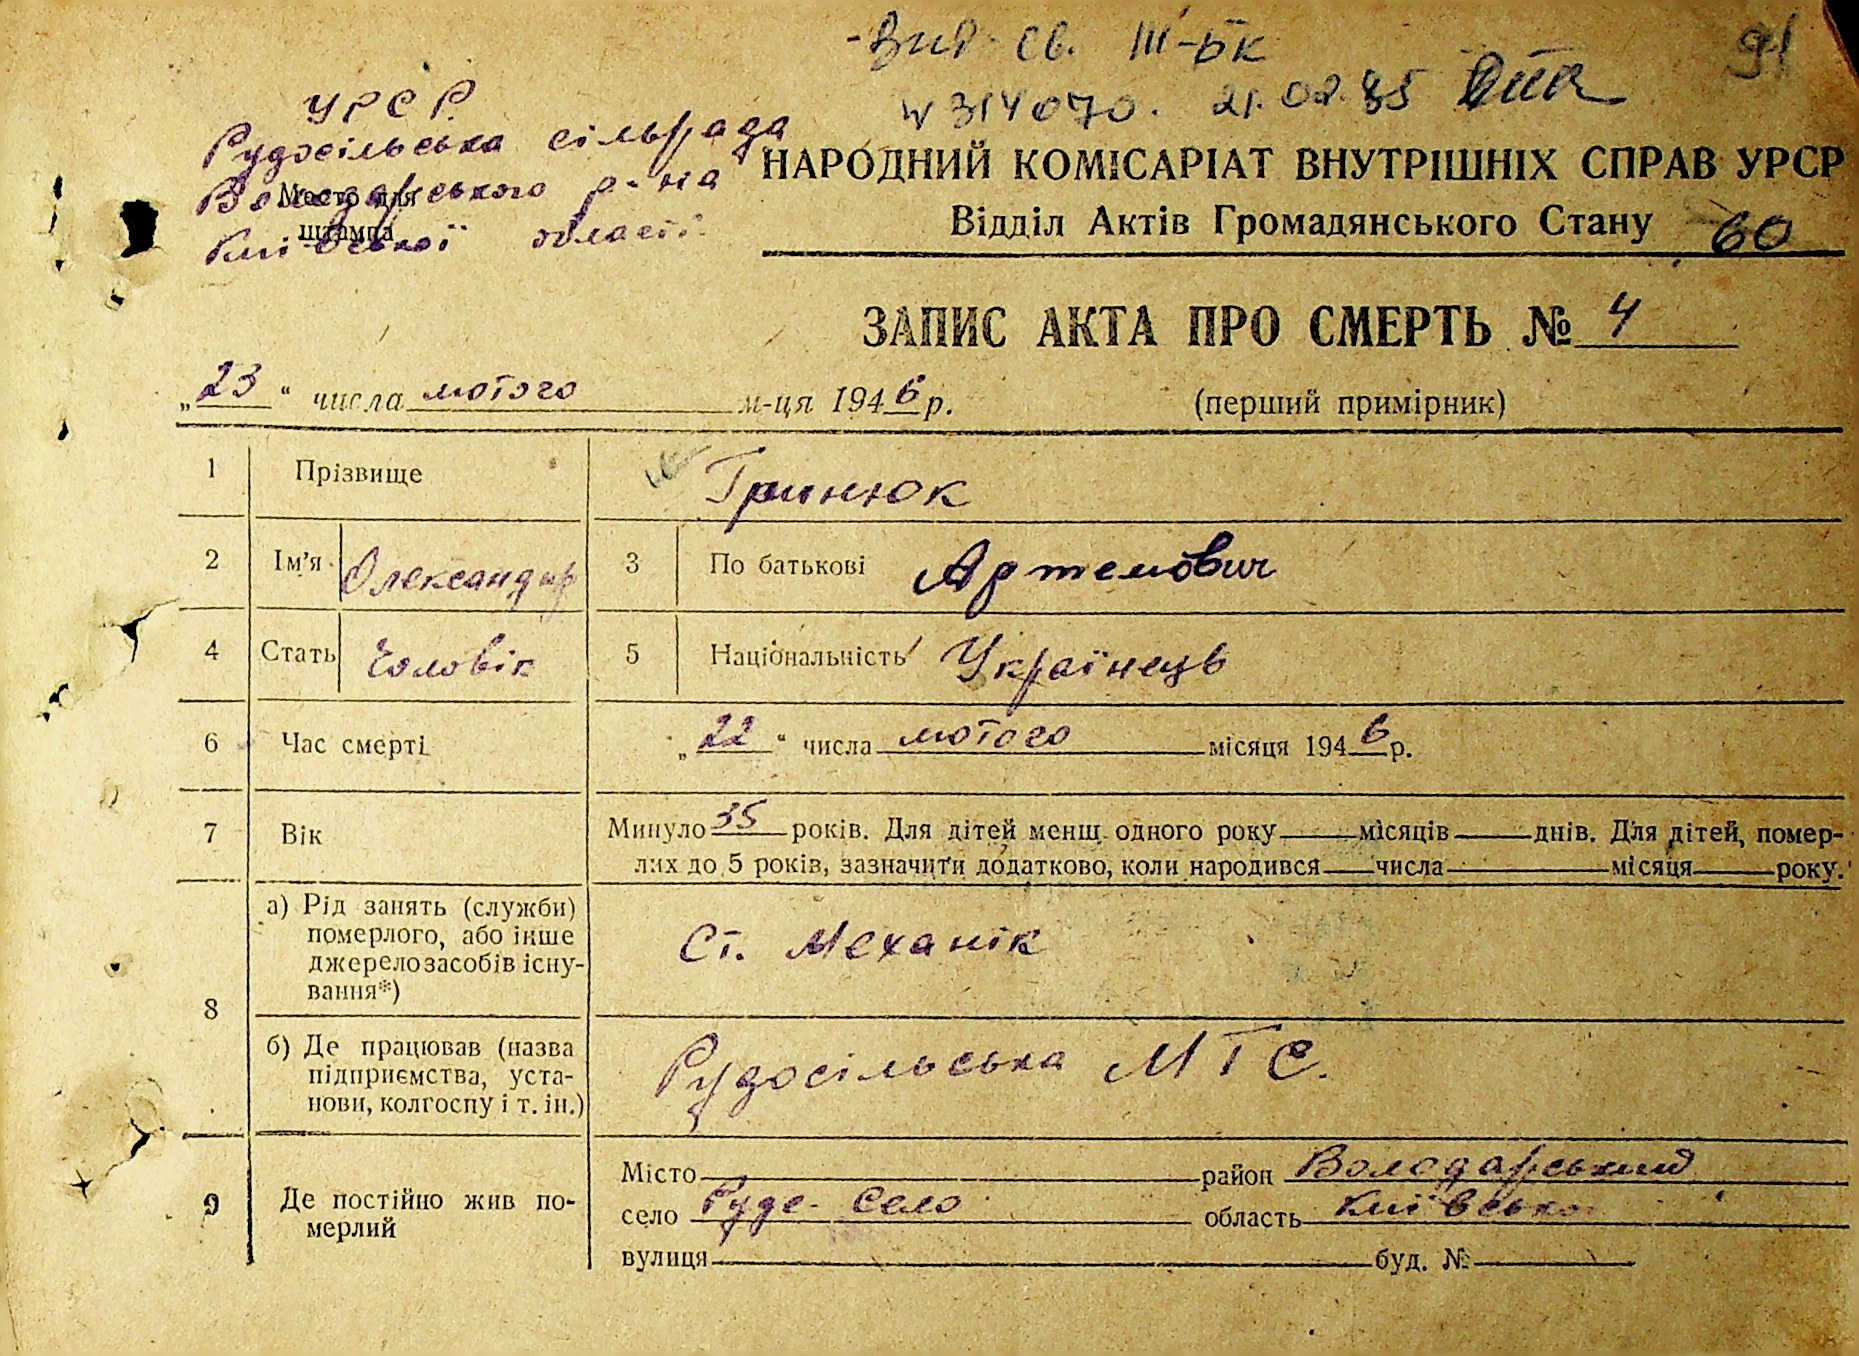 - Вид. св. III-БК
91
№ 314070. 21.02.85
УРСР
Рудосільська сільрада
Володарського р-на
Київської області
Место для
штампа
НАРОДНИЙ КОМІСАРІАТ ВНУТРІШНІХ СПРАВ УРСР
Відділ Актів Громадянського Стану 60
ЗАПИС АКТА ПРО СМЕРТЬ № 4
„23“ числа лютого м-ця 1946 р. (перший примірник)
1 Прізвище Гринюк
2 Ім'я Олександр 3 По батькові Артемович
4 Стать Чоловік 5 Національність Українець
6 Час смерті „22“ числа лютого місяця 1946 р.
7 Вік Минуло 35 років. Для дітей менш одного року місяців днів. Для дітей, помер-
лих до 5 років, зазначити додатково, коли народився числа місяця року.
8 а) Рід занять (служби)
померлого, або інше
джерело засобів існу-
вання*) Ст. Механік
б) Де працював (назва
підприємства, уста-
нови, колгоспу і т. ін.) Рудосільська МТС.
9 Де постійно жив по-
мерлий
Місто район Володарський
село Руде-Село область Київська
вулиця буд. №